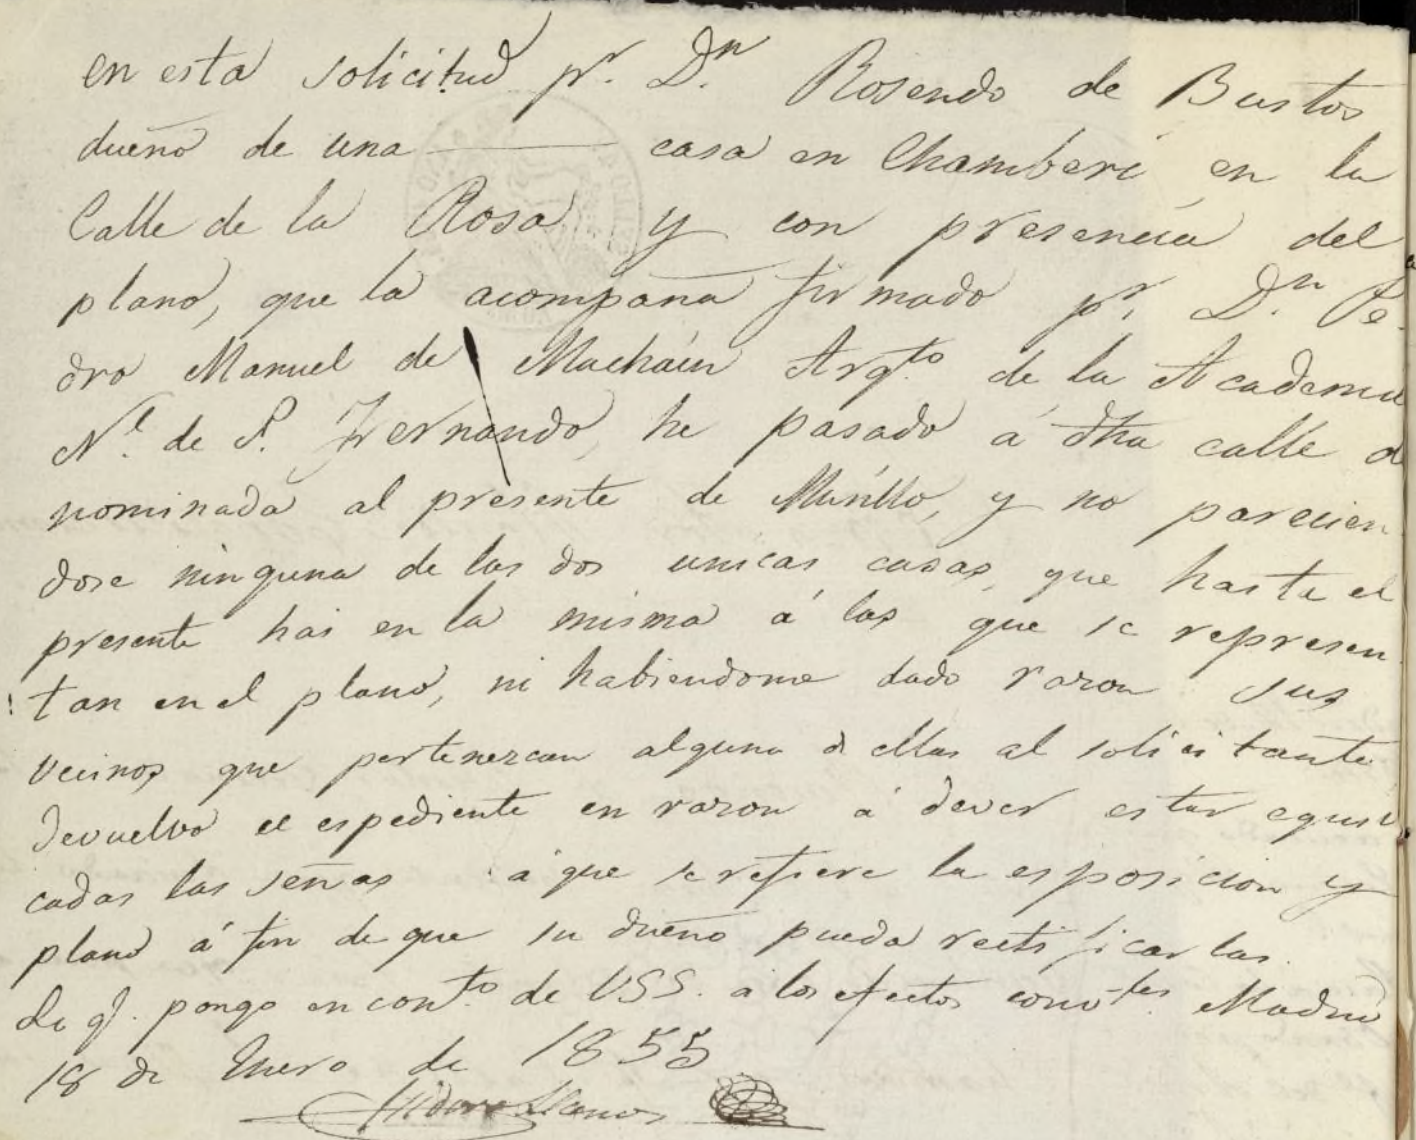 en esta solicitud pr. Dn. Rosendo de Bustos
dueño de una ——— casa en Chamberi en la
Calle de la Rosa y con presencia del
plano, que la acompaña firmado pr. Dn. Pe-
dro Manuel de Macháin Arqto. de la Academia
Nl. de S. Fernando, he pasado á dha calle de
nominada al presente de Murillo, y no parecien
dose ninguna de las dos unicas casas, que hasta el
presente hai en la misma á las que se represen
tan en el plano, ni habiendome dado razon sus
vecinos que pertenezcan alguna de ellas al solicitante
devuelvo el espediente en razon á dever estar equivo
cadas las señas á que se refiere la esposicion y
plano á fin de que su dueño pueda rectificarlas.
Lo q. pongo en conto. de VSS. á los efectos convtes. Madrid
18 de Enero de 1855
Isidoro Llanos